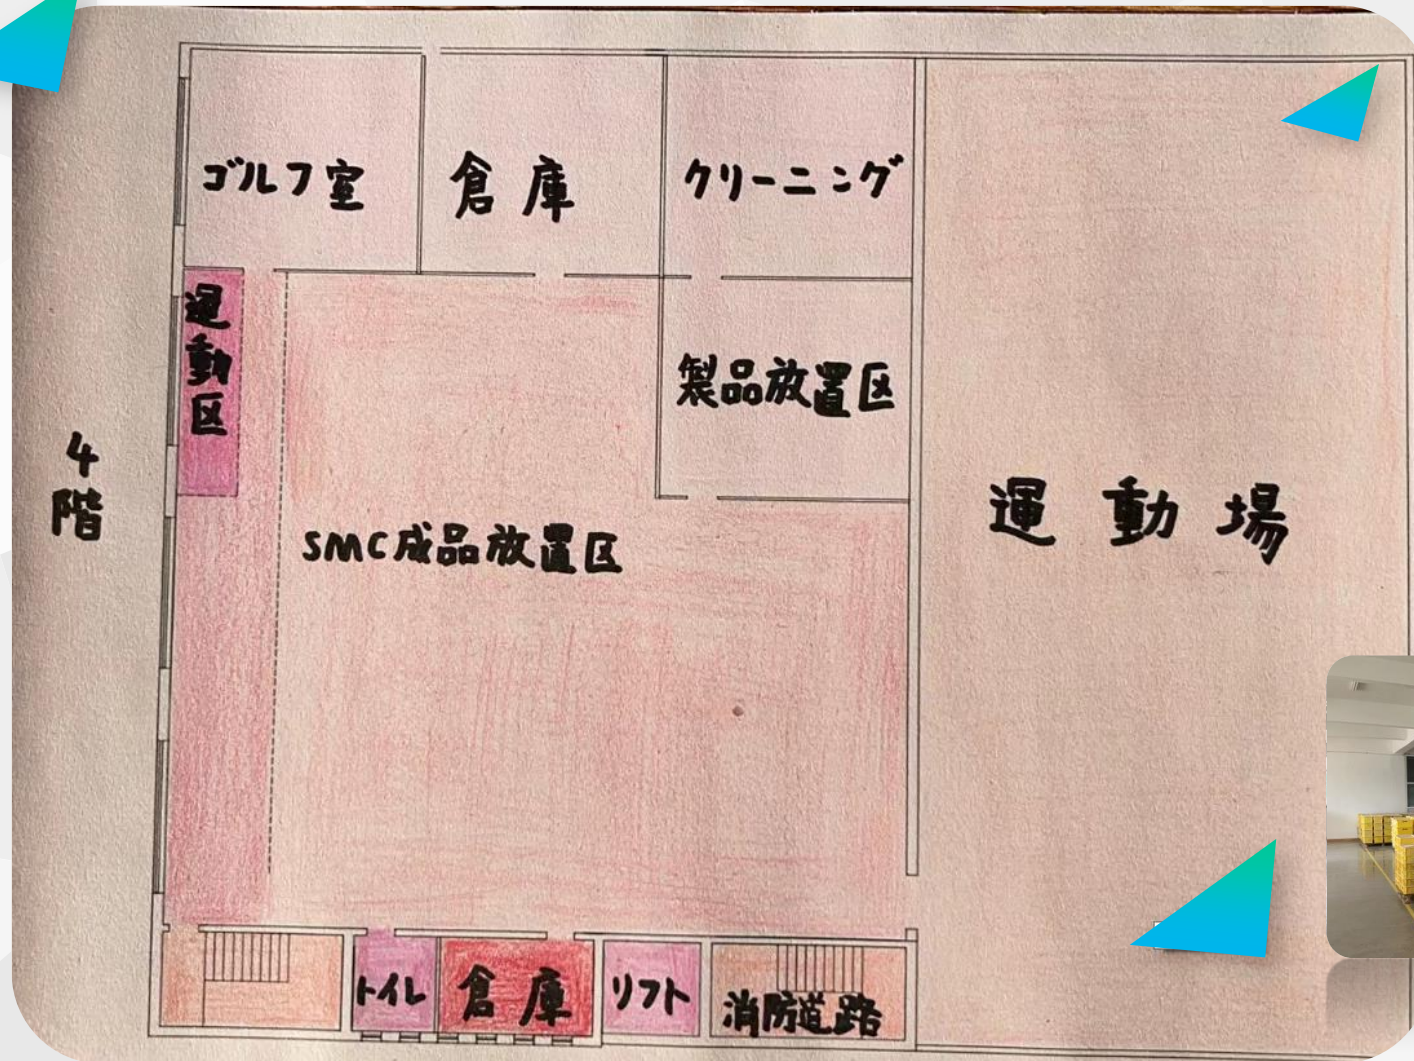 ゴルフ室
倉庫
クリーニング
運動区
製品放置区
4階
SMC成品放置区
運動場
トイレ
倉庫
リフト
消防道路